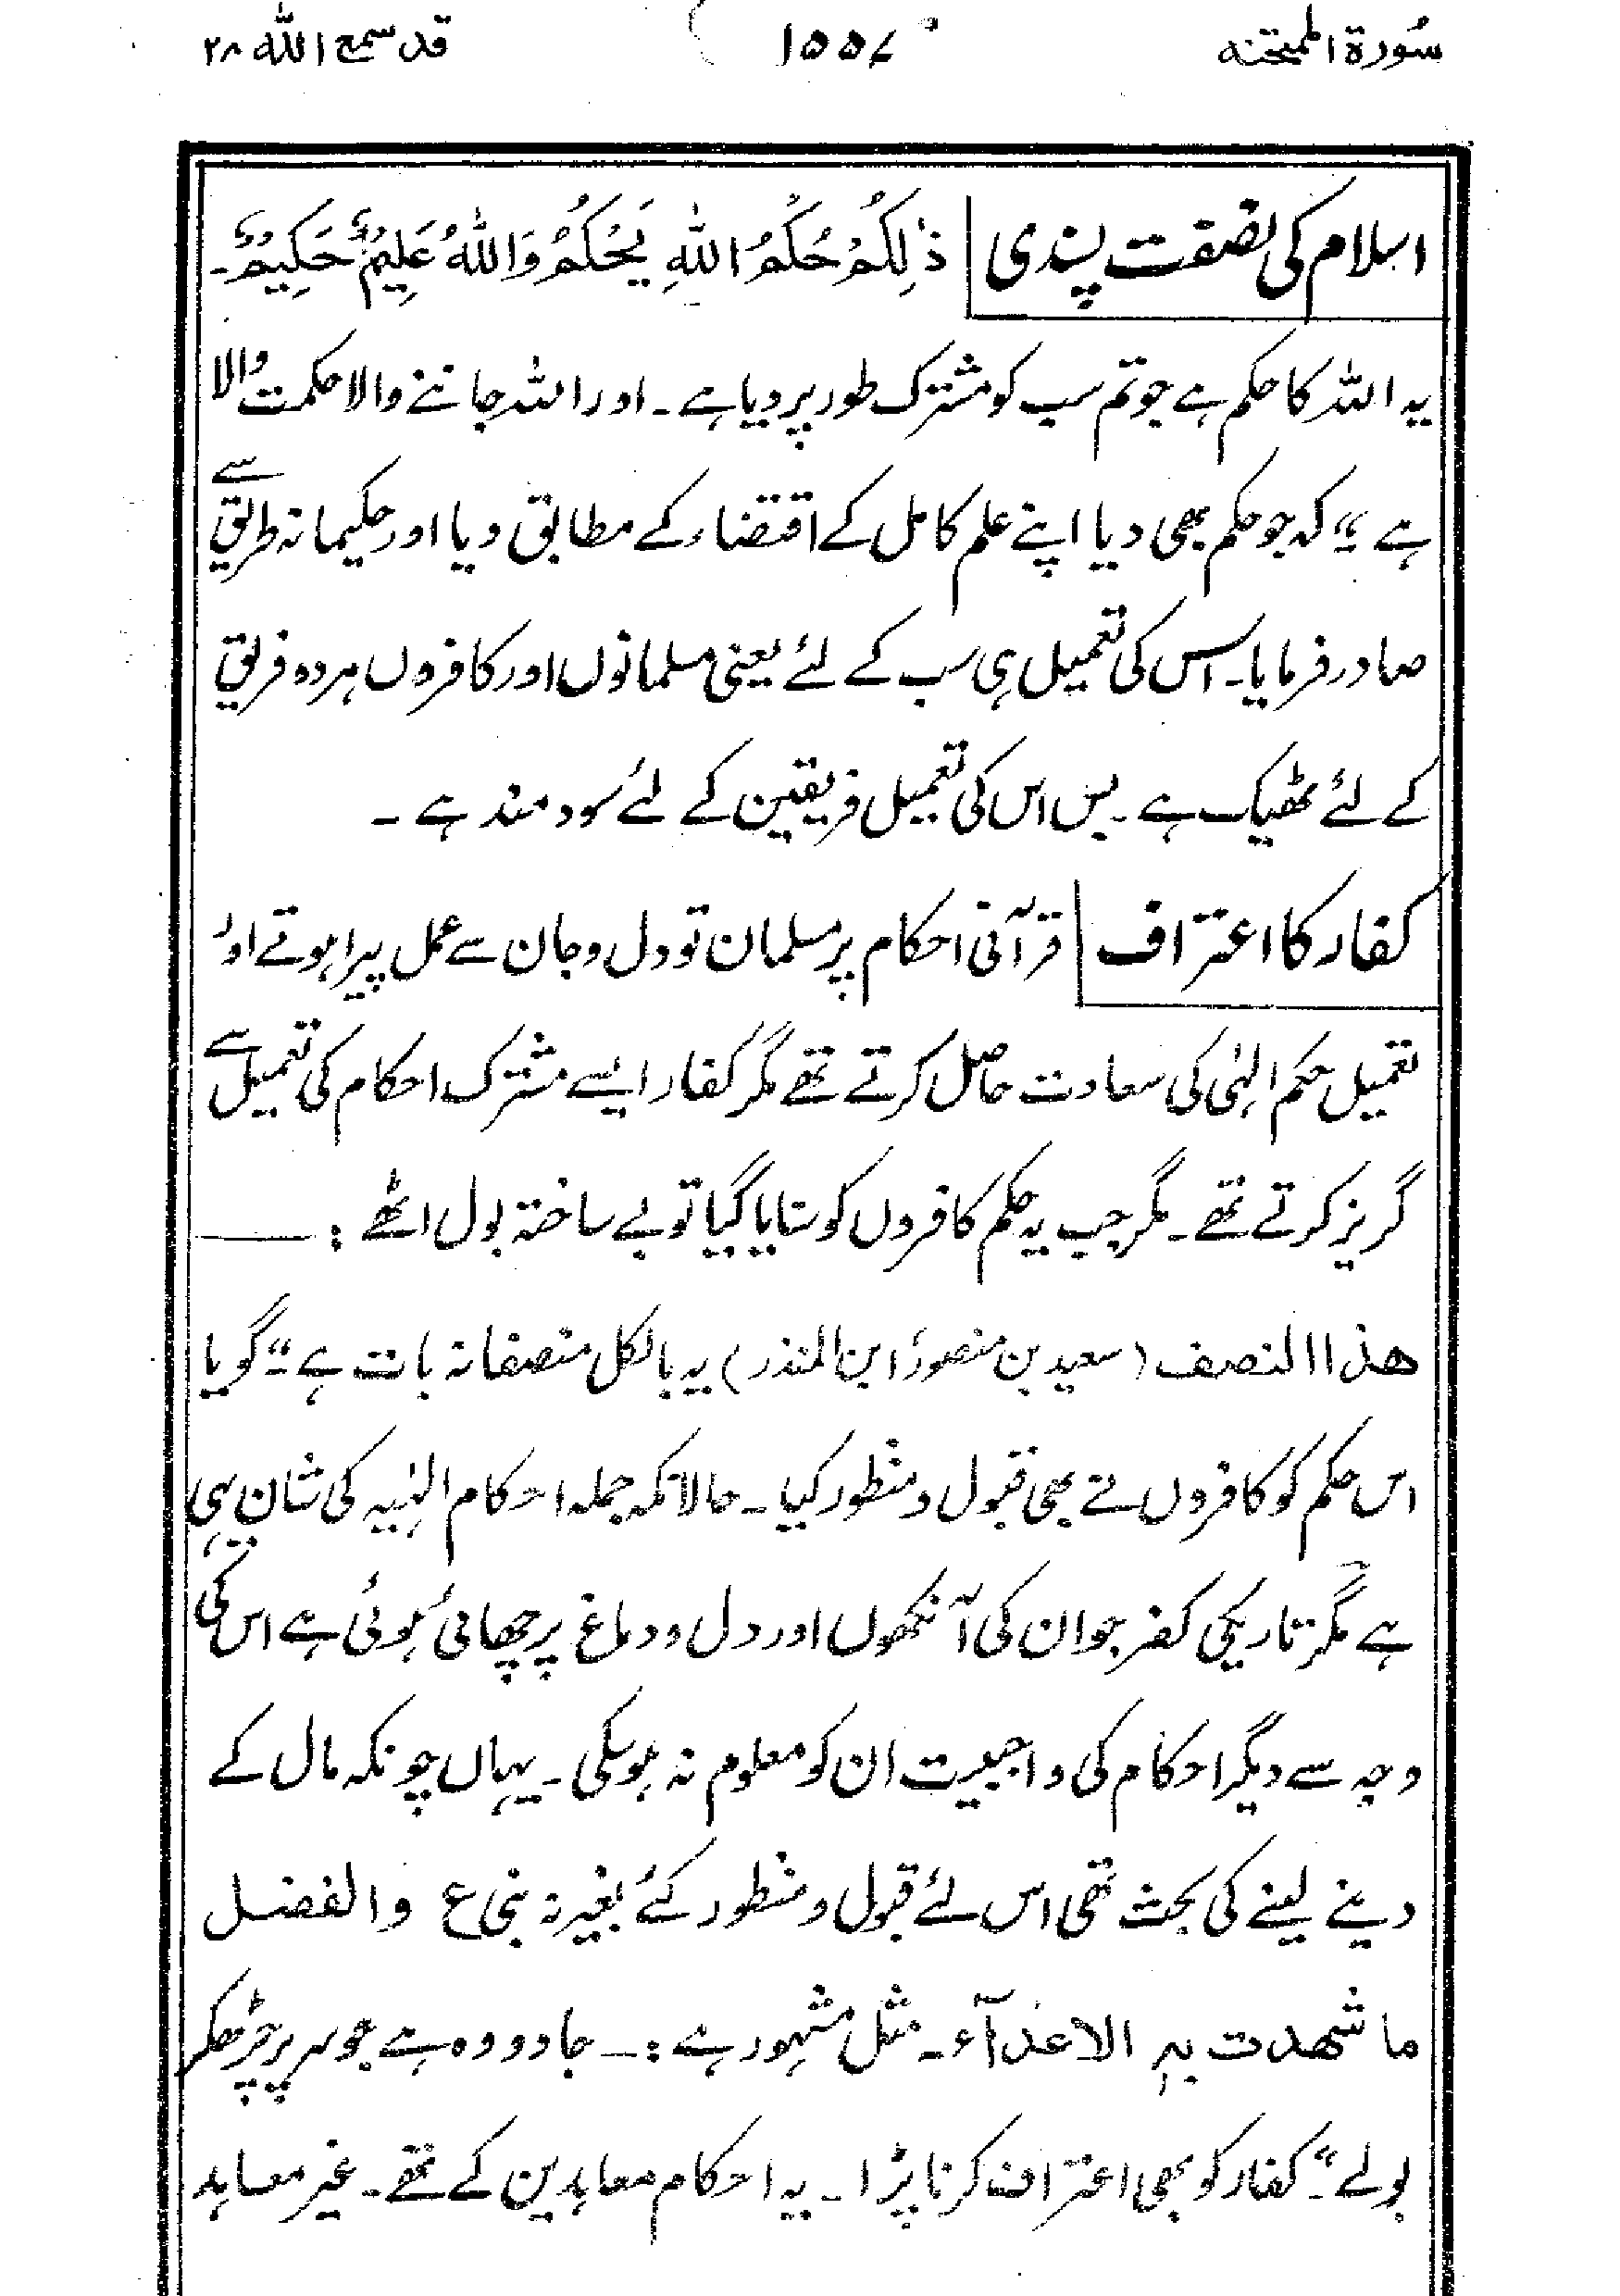 سُورۃ الممتحنه ۱۵۵۷ قد سمع اللّٰه ۲۸
اسلام کی نصفت پسندی ذٰلِكُمْ حُكْمُ اللّٰهِ يَحْكُمُ وَاللّٰهُ عَلِيْمٌ حَكِيْمٌ۔
یہ اللہ کا حکم ہے جو تم سب کو مشترک طور پر دیا ہے۔ اور اللہ جاننے والا حکمت والا
ہے“ کہ جو حکم بھی دیا اپنے علم کامل کے اقتضاء کے مطابق دیا اور حکیمانہ طریق سے
صادر فرمایا۔ اس کی تعمیل ہی سب کے لئے یعنی مسلمانوں اور کافروں ہر دو فریق
کے لئے ٹھیک ہے۔ پس اس کی تعمیل فریقین کے لئے سودمند ہے۔
کفار کا اعتراف قرآنی احکام پر مسلمان تو دل و جان سے عمل پیرا ہوتے اور
تعمیل حکم الٰہی کی سعادت حاصل کرتے تھے مگر کفار ایسے مشترک احکام کی تعمیل سے
گریز کرتے تھے۔ مگر جب یہ حکم کافروں کو سنایا گیا تو بے ساختہ بول اٹھے :۔
ھذا النصف (سعید بن منصورؒ ابن المنذر) یہ بالکل منصفانہ بات ہے“۔ گویا
اس حکم کو کافروں نے بھی قبول و منظور کیا۔ حالانکہ جملہ احکام الٰہیہ کی شان یہی
ہے مگر تاریکی کفر جو ان کی آنکھوں اور دل و دماغ پر چھائی ہوئی ہے اس کی
وجہ سے دیگر احکام کی واجبیت ان کو معلوم نہ ہو سکی۔ یہاں چونکہ مال کے
دینے لینے کی بحث تھی اس لئے قبول و منظور کئے بغیر نہ بنی ع والفضل
ما شھدت بہٖ الاعدآء۔ مثل مشہور ہے :۔ جادو وہ ہے جو سر پر چڑھکر
بولے“۔ کفار کو بھی اعتراف کرنا پڑا۔ یہ احکام معاہدین کے تھے۔ غیر معاہد